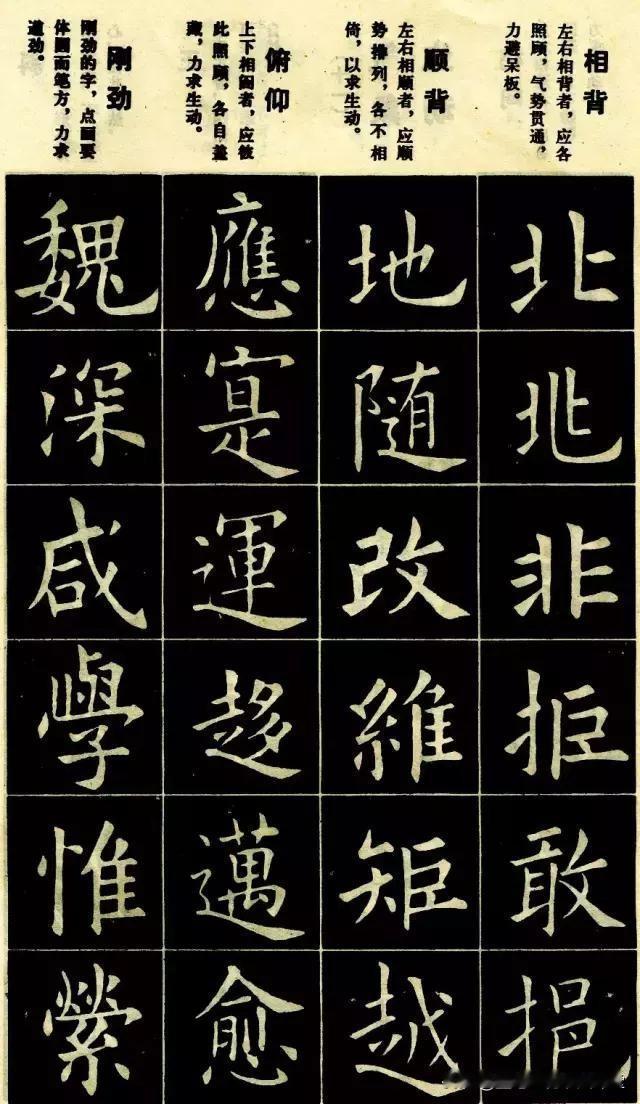 相背
左右相背者，应各
照顾，气势贯通，
力避呆板。
北
兆
非
拒
敢
挹
顺背
左右相顺者，应顺
势排列，各不相
倚，以求生动。
地
随
改
維
矩
越
俯仰
上下相阖者，应彼
此照顾，各自盖
藏，力求生动。
應
寔
運
趍
邁
愈
刚劲
刚劲的字，点画要
体圆而笔方，力求
遒劲。
魏
深
咸
學
惟
縈